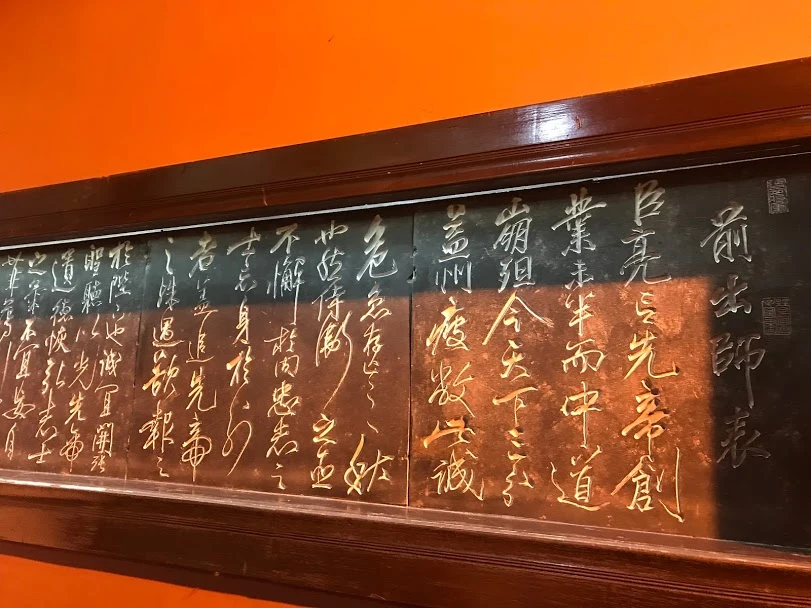 前出師表
臣亮言先帝創
業未半而中道
崩殂今天下三分
益州疲敝此誠
危急存亡之秋
也然侍衛之臣
不懈於内忠志之
士忘身於外
者蓋追先帝
之殊遇欲報之
於陛下也誠宜開張
聖聽以光先帝
遺德恢弘志士
之氣不宜妄自
菲薄引